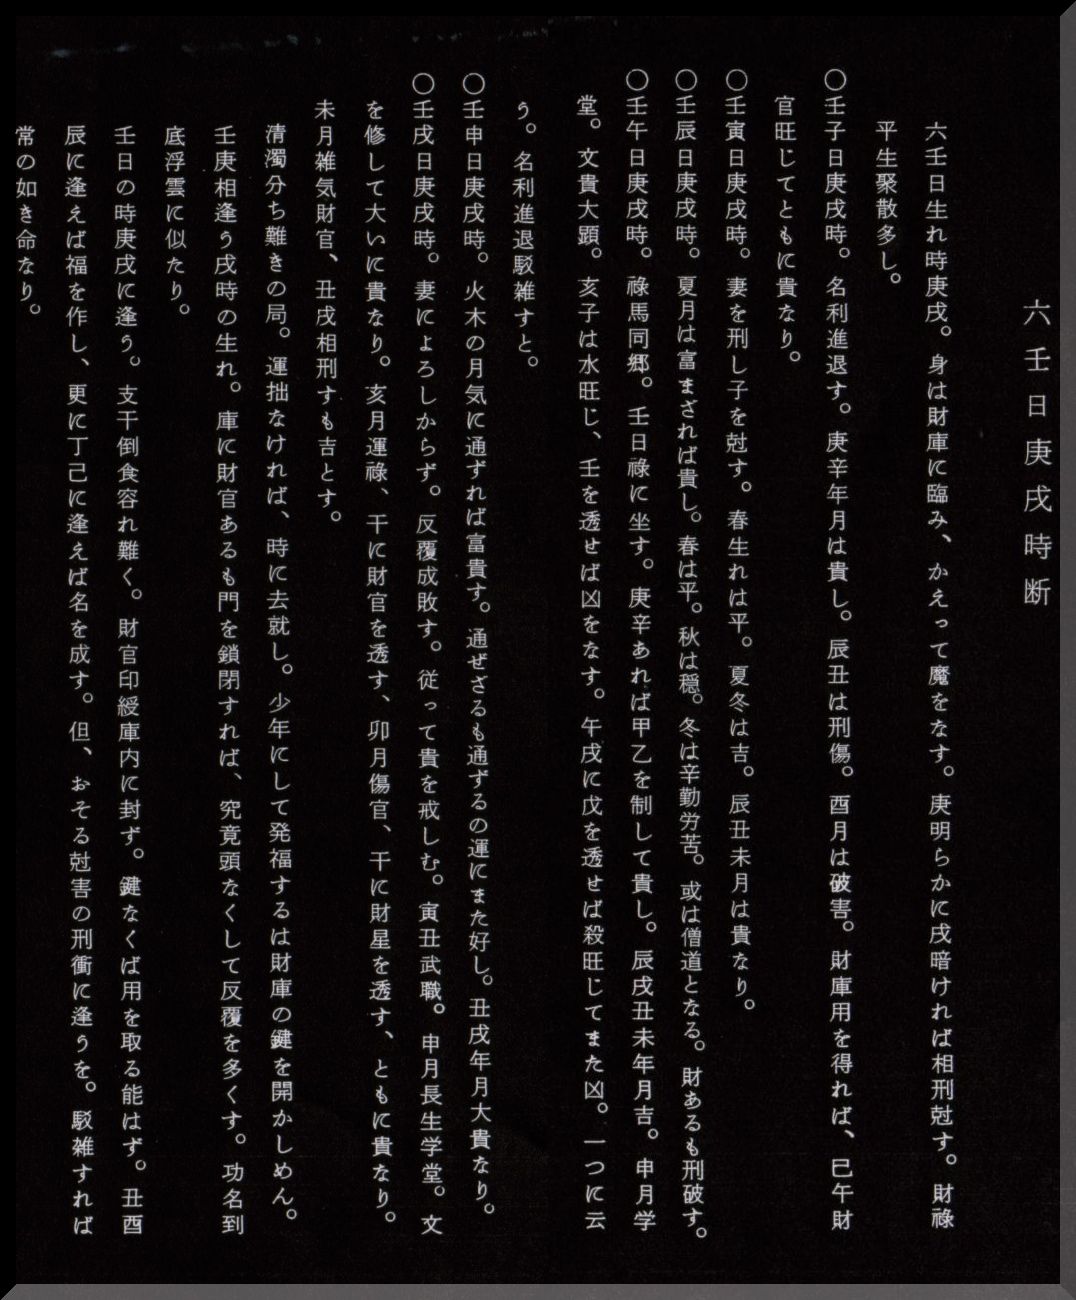 六壬日庚戌時断
六壬日生れ時庚戌。身は財庫に臨み、かえって魔をなす。庚明らかに戌暗ければ相刑尅す。財祿
平生聚散多し。
○壬子日庚戌時。名利進退す。庚辛年月は貴し。辰丑は刑傷。酉月は破害。財庫用を得れば、巳午財
官旺じてともに貴なり。
○壬寅日庚戌時。妻を刑し子を尅す。春生れは平。夏冬は吉。辰丑未月は貴なり。
○壬辰日庚戌時。夏月は富まざれば貴し。春は平。秋は穏。冬は辛勤労苦。或は僧道となる。財あるも刑破す。
○壬午日庚戌時。祿馬同郷。壬日祿に坐す。庚辛あれば甲乙を制して貴し。辰戌丑未年月吉。申月学
堂。文貴大顕。亥子は水旺じ、壬を透せば凶をなす。午戌に戊を透せば殺旺じてまた凶。一つに云
う。名利進退駁雑すと。
○壬申日庚戌時。火木の月気に通ずれば富貴す。通ぜざるも通ずるの運にまた好し。丑戌年月大貴なり。
○壬戌日庚戌時。妻によろしからず。反覆成敗す。従って貴を戒しむ。寅丑武職。申月長生学堂。文
を修して大いに貴なり。亥月運祿、干に財官を透す、卯月傷官、干に財星を透す、ともに貴なり。
未月雑気財官、丑戌相刑すも吉とす。
清濁分ち難きの局。運拙なければ、時に去就し。少年にして発福するは財庫の鍵を開かしめん。
壬庚相逢う戌時の生れ。庫に財官あるも門を鎖閉すれば、究竟頭なくして反覆を多くす。功名到
底浮雲に似たり。
壬日の時庚戌に逢う。支干倒食容れ難く。財官印綬庫内に封ず。鍵なくば用を取る能はず。丑酉
辰に逢えば福を作し、更に丁己に逢えば名を成す。但、おそる尅害の刑衝に逢うを。駁雑すれば
常の如き命なり。